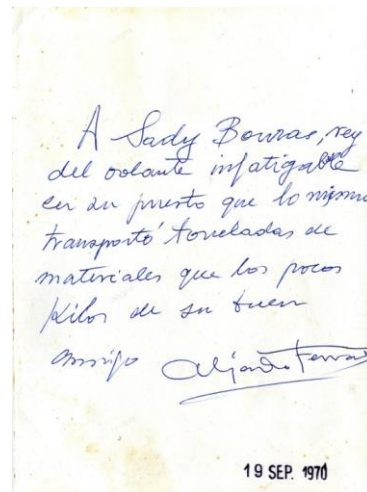 A Sady Bouras, rey
del volante infatigable
en su puesto que lo mismo
transportó toneladas de
materiales que los pocos
Kilos de su buen
amigo Alejandro
19 SEP. 1970